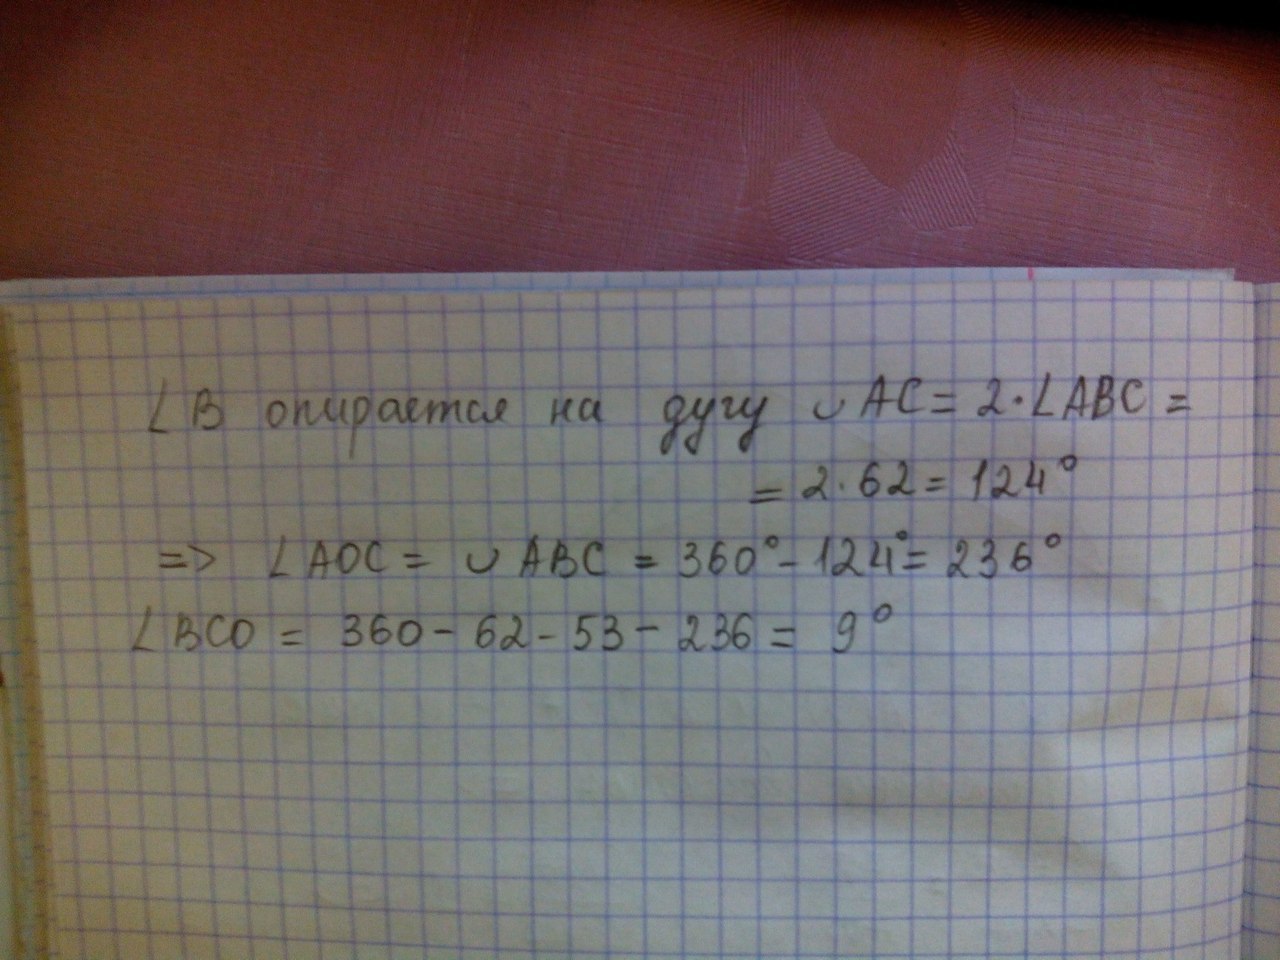 ∠B опирается на дугу ∪ AC = 2·∠ABC =
= 2·62 = 124°
=> ∠AOC = ∪ ABC = 360° - 124° = 236°
∠BCO = 360 - 62 - 53 - 236 = 9°